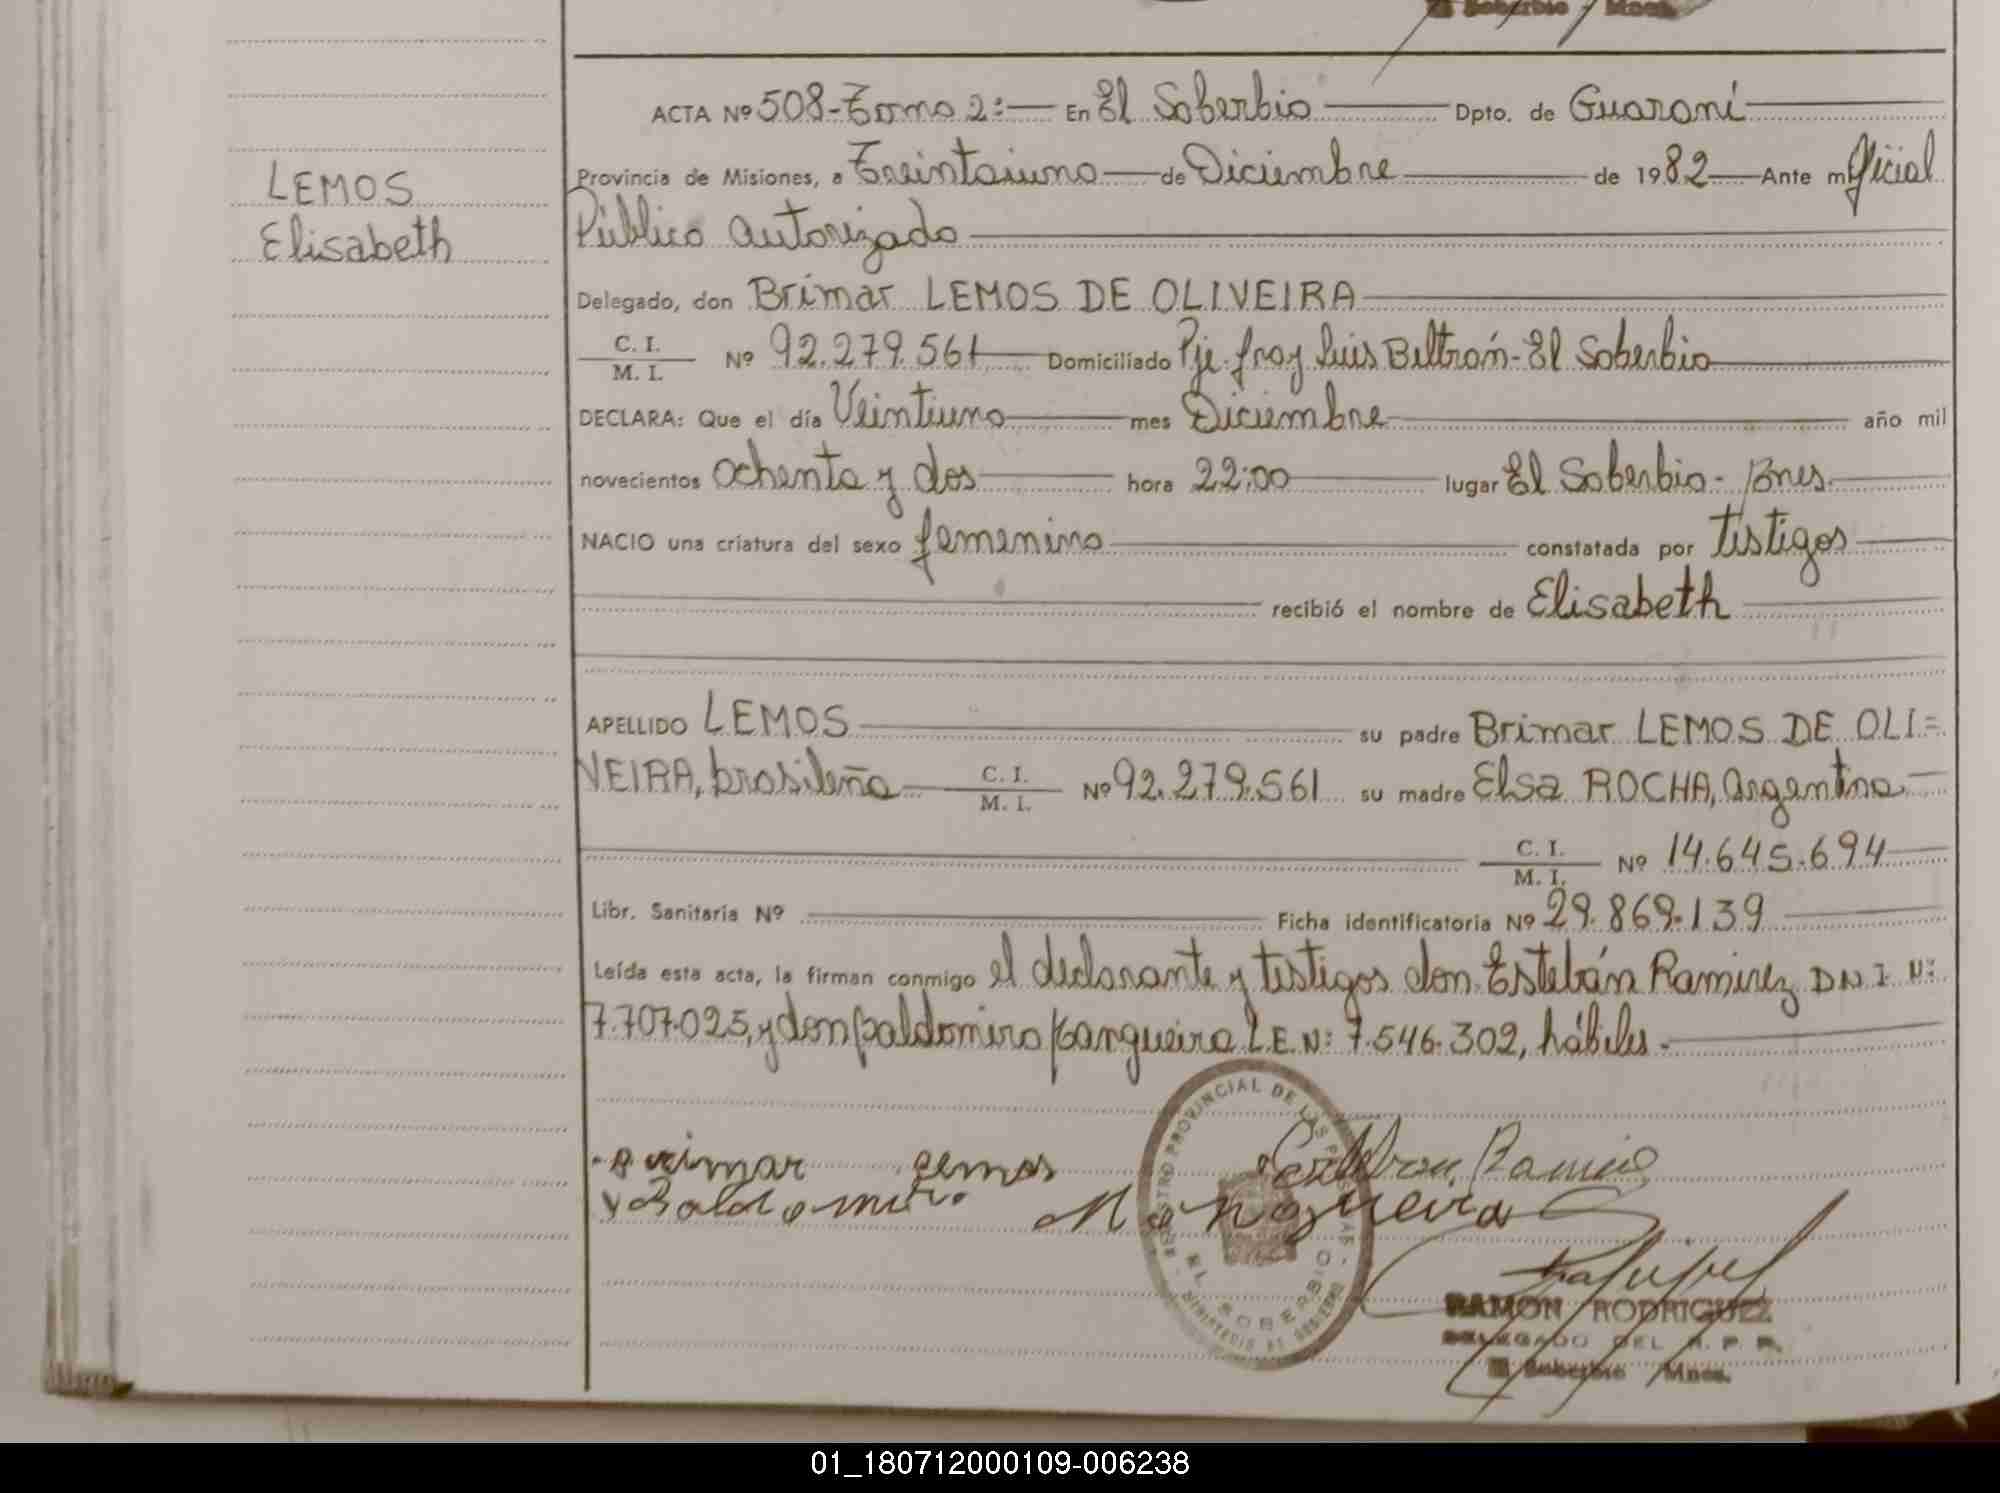 El Soberbio - Mnes.
ACTA Nº 508-Tomo 2:- En El Soberbio Dpto. de Guaraní
Provincia de Misiones, a Treintaiuno de Diciembre de 1982 Ante mí Oficial
Público autorizado
LEMOS
Elisabeth
Delegado, don Brimar LEMOS DE OLIVEIRA
C. I.
M. I. Nº 92.279.561 Domiciliado Pje. fray Luis Beltrán - El Soberbio
DECLARA: Que el día Veintiuno mes Diciembre año mil
novecientos ochenta y dos hora 22:00 lugar El Soberbio - Mnes.
NACIO una criatura del sexo femenino constatada por testigos
recibió el nombre de Elisabeth
APELLIDO LEMOS su padre Brimar LEMOS DE OLI=
VEIRA, brasileña C. I.
M. I. Nº 92.279.561 su madre Elsa ROCHA, argentina
C. I.
M. I. Nº 14.645.694
Libr. Sanitaria Nº Ficha identificatoria Nº 29.869.139
Leída esta acta, la firman conmigo el declarante y testigos don Estebán Ramirez DNI Nº:
7.707.025, y don Baldomiro Mangueira L.E.Nº: 7.546.302, hábiles.-
Brimar Lemos Esteban Ramirez
Baldomiro Mangueira
REGISTRO PROVINCIAL DE LAS PERSONAS
EL SOBERBIO
MINISTERIO DE GOBIERNO
RAMON RODRIGUEZ
DELEGADO DEL R. P. P.
El Soberbio Mnes.
01_180712000109-006238